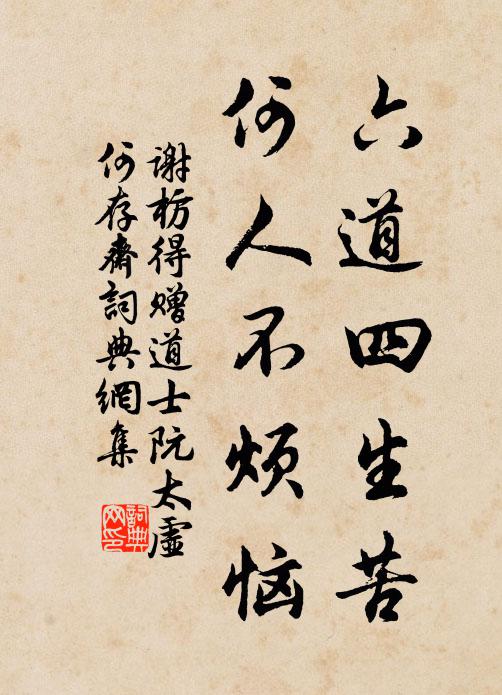 六道四生苦
何人不烦恼
谢枋得赠道士阮太虚
何存斋詞典網集
詞典
网印